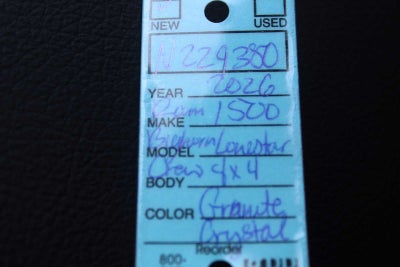 NEW USED
N229380
YEAR 2026
MAKE Ram 1500
MODEL Bighorn Lonestar
BODY Crew 4x4
COLOR Granite
Crystal
Reorder
800-